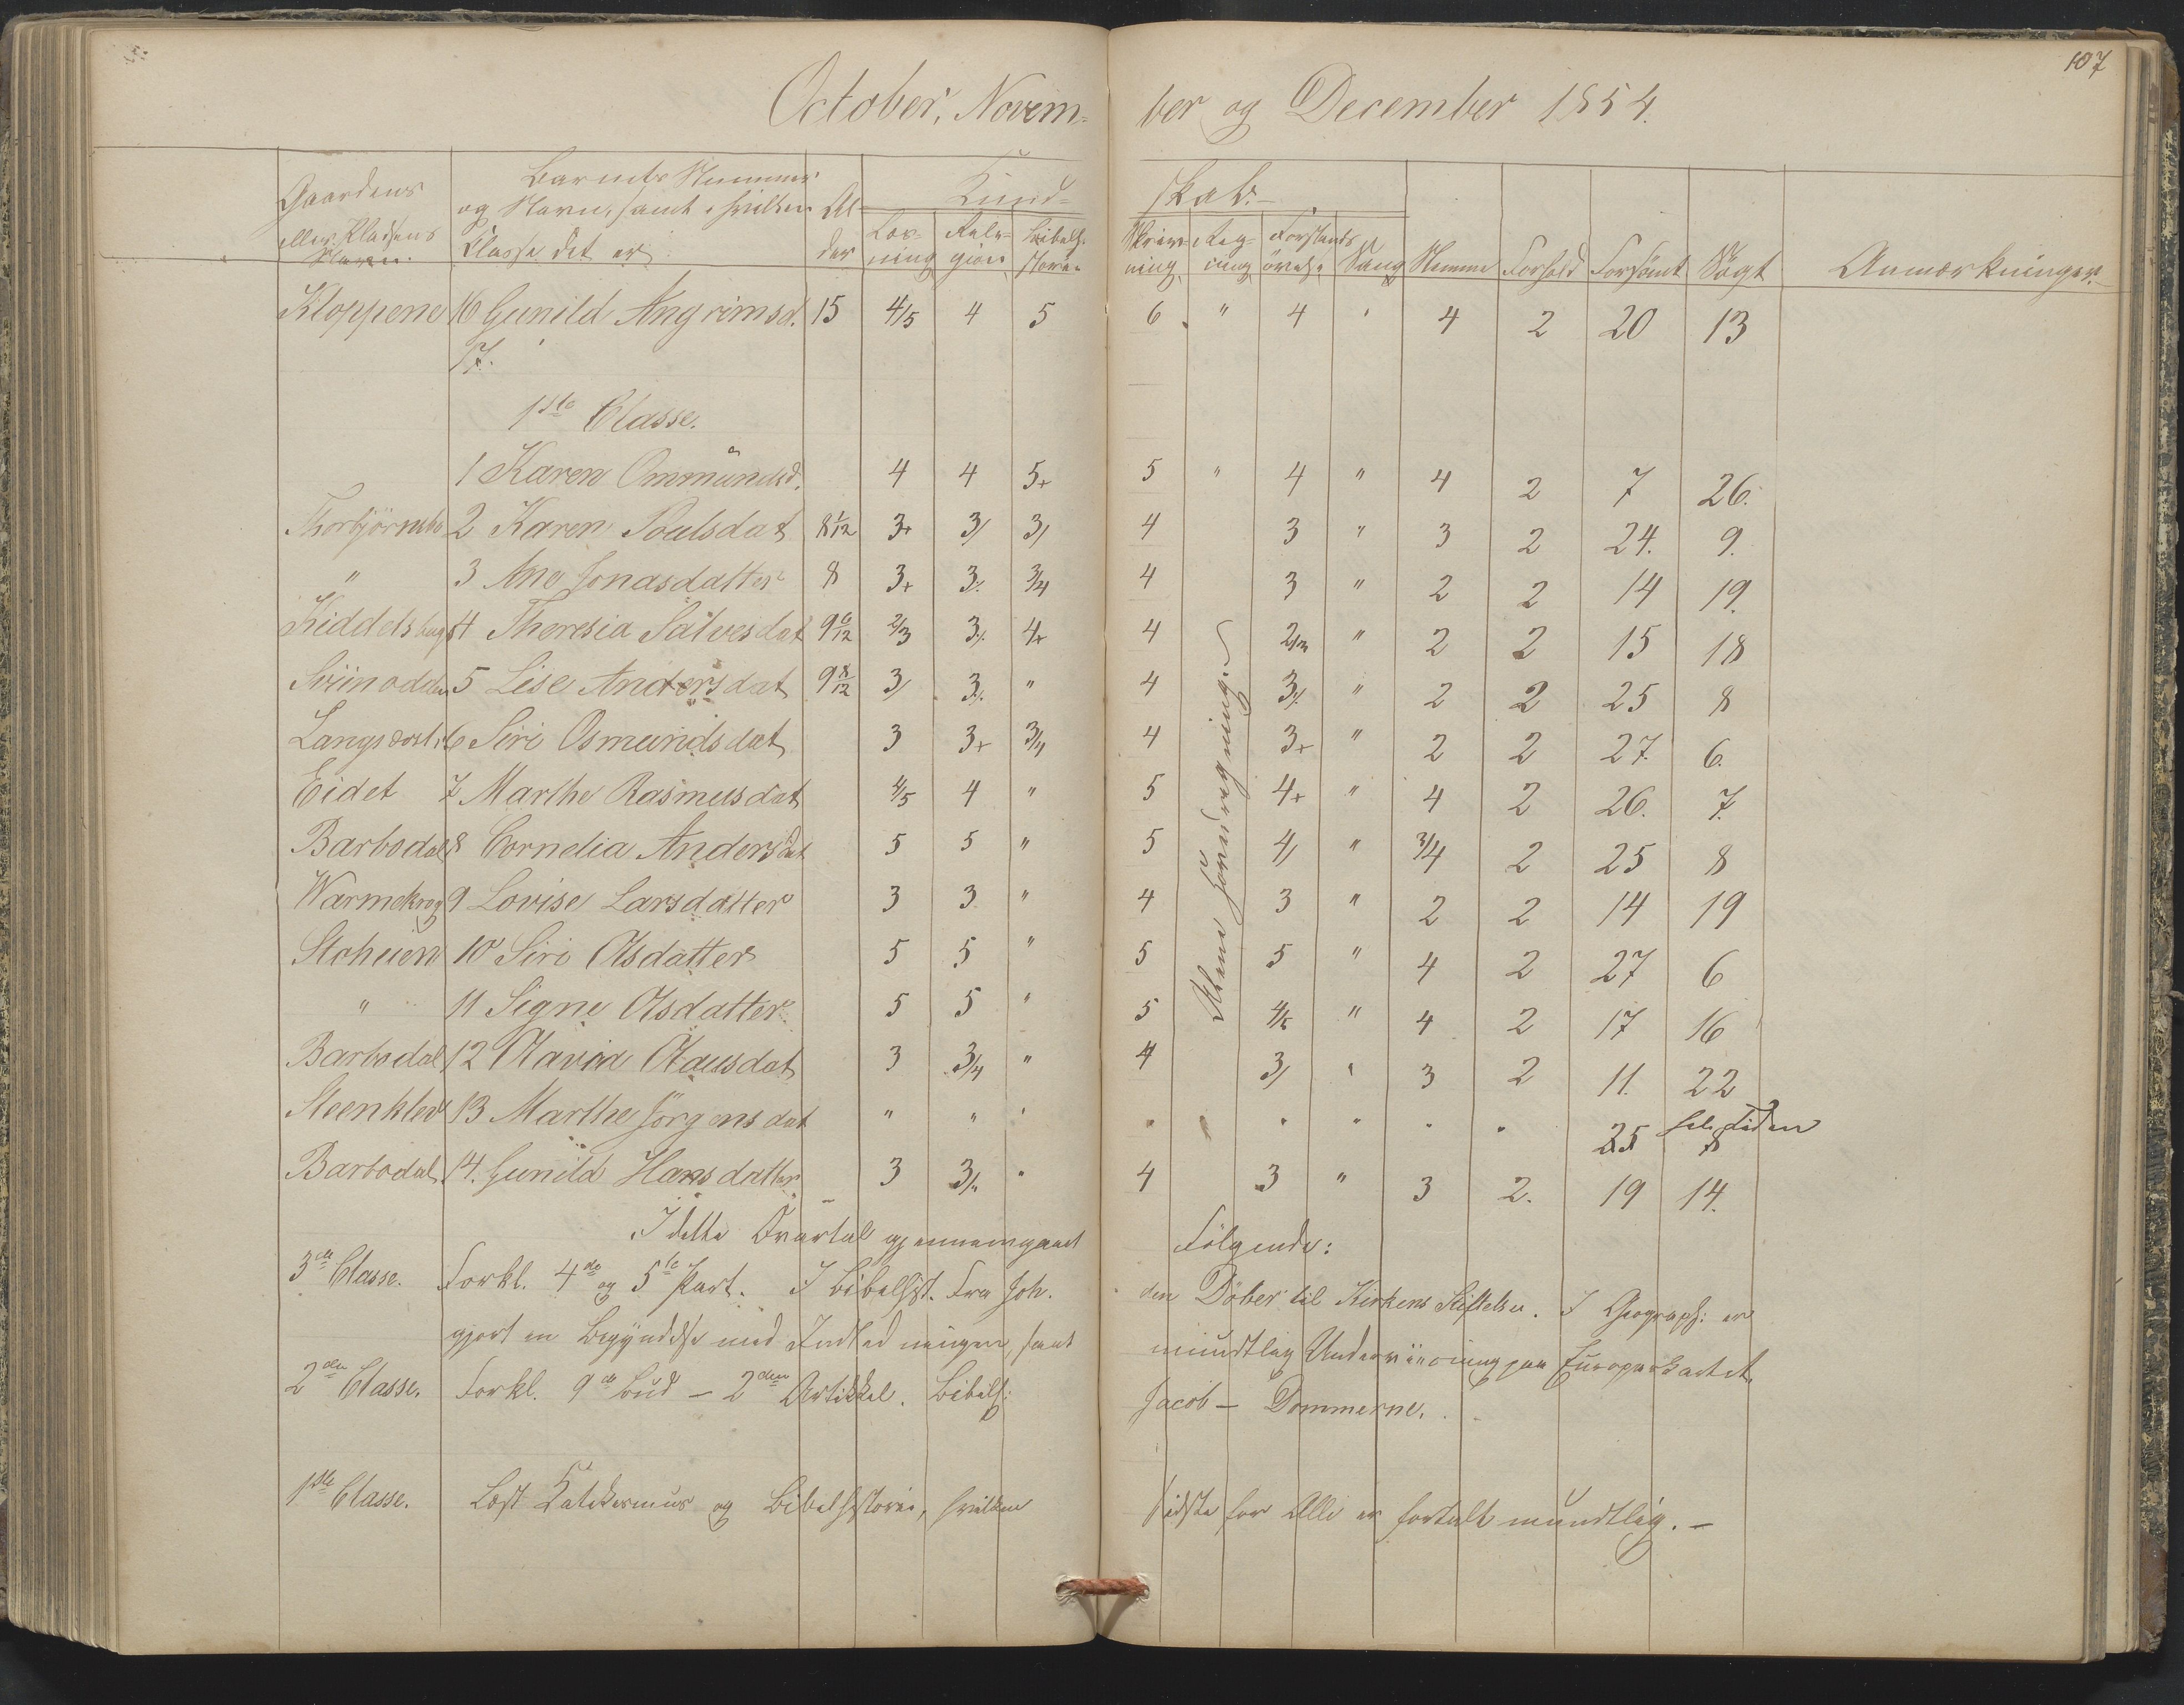 107
October, Novem- ber og December 1854.
Gaardens eller Pladsens Navn. Barnets Nummer og Navn, samt i hvilken Classe det er Alder Kund- skab.
Læsning Religion Bibelhistorie Skrivning Regning Forstandsøvelse Sang Nemme Forhold Forsömt Sögt Anmærkninger.
Kloppene 16 Gunild Angrimsd. 15 4/5 4 5 6 " 4 " 4 2 20 13
17.
1ste Classe.
1 Karen Ommundsd. 4 4 5+ 5 " 4 " 4 2 7 26.
2 Karen Poulsdat 8 1/12 3+ 3/ 3/ 4 3 " 3 2 24. 9.
" 3 Ane Jonasdatter 8 3+ 3/. 3/4 4 3 " 2 2 14 19.
4 Theresia Salvesdat 9 6/12 2/3 3/. 4+ 4 2/3 " 2 2 15 18
5 Lise Andersdat 9 8/12 3/ 3/. " 4 3/. " 2 2 25 8
6 Siri Osmundsdat 3 3+ 3/4 4 3+ " 2 2 27. 6.
Eidet 7 Marthe Rasmusdat 4/5 4 " 5 4+ " 4 2 26. 7.
Barbodal 8 Cornelia Andersdat 5 5 " 5 4/ " 3/4 2 25 8
Warmekrog 9 Lovise Larsdatter 3 3 " 4 3 " 2 2 14 19
Stoheien 10 Siri Olsdatter 5 5 " 5 5 " 4 2 27 6
" 11 Signe Olsdatter 5 5 " 5 4/5 " 4 2 17 16
Barbodal 12 Olavia Olausdat 3 3/4 " 4 3/ " 3 2 11. 22
Steenklev 13 Marthe Jörgensdat " " " " " " " " 25 8 tiden
Barbodal 14. Gunild Hansdatter 3 3/4 " 4 3 " 3 2. 19 14.
regning.
I dette Qvartal gjennemgaaet Følgende:
3die Classe. Forkl. 4de og 5te Part. I Bibelhist. fra Joh. den Döber til Kirkens Stiftelse. I Geograph: er
gjort en Begyndelse med Indledningen, samt mundtlig Underviisning paa Europakartet.
2den Classe. Forkl. 9de Bud – 2den Artikkel. Bibelh: Jacob – Dommerne.
1ste Classe. Læst Katekismus og Bibelhistorie, hvilken sidste for Alle er fortalt mundtlig. –